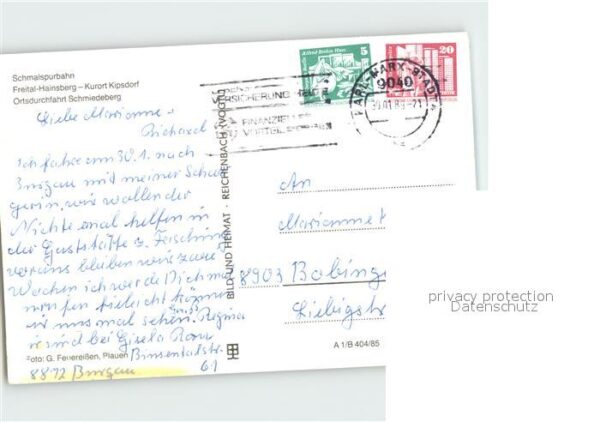 Schmalspurbahn
Freital-Hainsberg – Kurort Kipsdorf
Ortsdurchfahrt Schmiedeberg
Liebe Marianne
Richard
Ich fahre am 30.1. nach
Burgau mit meiner Schwä
gerin, wir wollen der
Nichte mal helfen in
der Gaststätte z. Fasching
voraus bleiben wir zwei
Wochen ich werde Dich mal
kommen
wir uns mal sehen. Gruß Regina
wir sind bei Gisela
Binsentalstr.
8872 Burgau 61
Foto: G. Feuereißen, Plauen
BILD UND HEIMAT · REICHENBACH (VOGTL)
A 1/B 404/85
5
20
KARL-MARX-STADT
9040
30.01.89-21
FINANZIELLE
An
Marianne
8903 Bobing
Liebigstr
privacy protection
Datenschutz